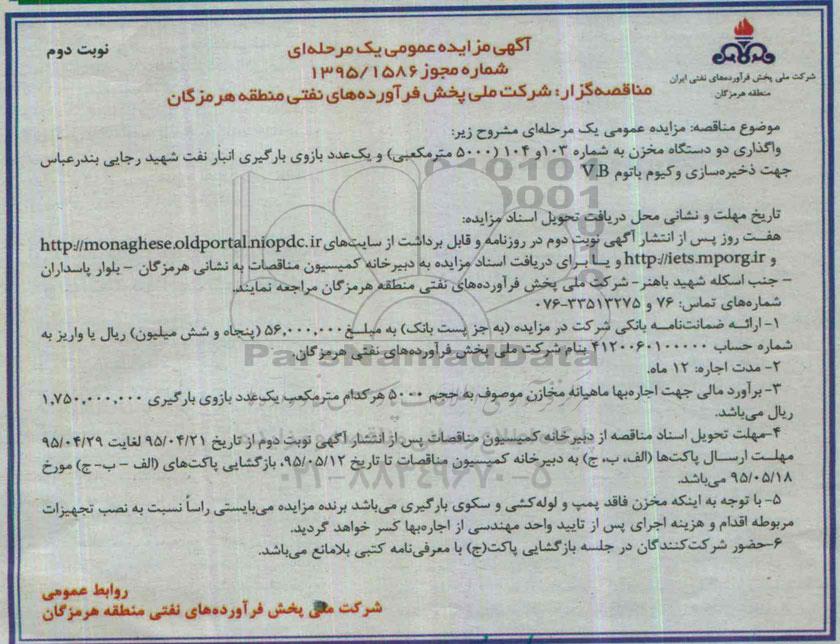 نوبت دوم
آگهی مزایده عمومی یک مرحله‌ای
شماره مجوز ۱۳۹۵/۱۵۸۶
مناقصه‌گزار: شرکت ملی پخش فرآورده‌های نفتی منطقه هرمزگان
شرکت ملی پخش فرآورده‌های نفتی ایران
منطقه هرمزگان
موضوع مناقصه: مزایده عمومی یک مرحله‌ای مشروح زیر:
واگذاری دو دستگاه مخزن به شماره ۱۰۳و ۱۰۴ (۵۰۰۰ مترمکعبی) و یک‌عدد بازوی بارگیری انبار نفت شهید رجایی بندرعباس
جهت ذخیره‌سازی وکیوم باتوم V.B
تاریخ مهلت و نشانی محل دریافت تحویل اسناد مزایده:
هفت روز پس از انتشار آگهی نوبت دوم در روزنامه و قابل برداشت از سایت‌های http://monaghese.oldportal.niopdc.ir
و http://iets.mporg.ir و یا برای دریافت اسناد مزایده به دبیرخانه کمیسیون مناقصات به نشانی هرمزگان – بلوار پاسداران
– جنب اسکله شهید باهنر– شرکت ملی پخش فرآورده‌های نفتی منطقه هرمزگان مراجعه نمایند.
شماره‌های تماس: ۷۶ و ۳۳۵۱۳۲۷۵-۰۷۶
۱- ارائه ضمانت‌نامه بانکی شرکت در مزایده (به جز پست بانک) به مبلغ ۵۶,۰۰۰,۰۰۰ (پنجاه و شش میلیون) ریال یا واریز به
شماره حساب ۴۱۲۰۰۶۰۱۰۰۰۰۰ بنام شرکت ملی پخش فرآورده‌های نفتی هرمزگان.
۲- مدت اجاره: ۱۲ ماه.
۳- برآورد مالی جهت اجاره‌بها ماهیانه مخازن موصوف به حجم ۵۰۰۰ هرکدام مترمکعب یک‌عدد بازوی بارگیری ۱,۷۵۰,۰۰۰,۰۰۰
ریال می‌باشد.
۴-مهلت تحویل اسناد مناقصه از دبیرخانه کمیسیون مناقصات پس از انتشار آگهی نوبت دوم از تاریخ ۹۵/۰۴/۲۱ لغایت ۹۵/۰۴/۲۹
مهلت ارسال پاکت‌ها (الف، ب، ج) به دبیرخانه کمیسیون مناقصات تا تاریخ ۹۵/۰۵/۱۲، بازگشایی پاکت‌های (الف – ب- ج) مورخ
۹۵/۰۵/۱۸ می‌باشد.
۵- با توجه به اینکه مخزن فاقد پمپ و لوله‌کشی و سکوی بارگیری می‌باشد برنده مزایده می‌بایستی راساً نسبت به نصب تجهیزات
مربوطه اقدام و هزینه اجرای پس از تایید واحد مهندسی از اجاره‌بها کسر خواهد گردید.
۶-حضور شرکت‌کنندگان در جلسه بازگشایی پاکت(ج) با معرفی‌نامه کتبی بلامانع می‌باشد.
روابط عمومی
شرکت ملی پخش فرآورده‌های نفتی منطقه هرمزگان
ParsNamadData
۰۲۱-۸۸۳۴۹۶۷۰-۵